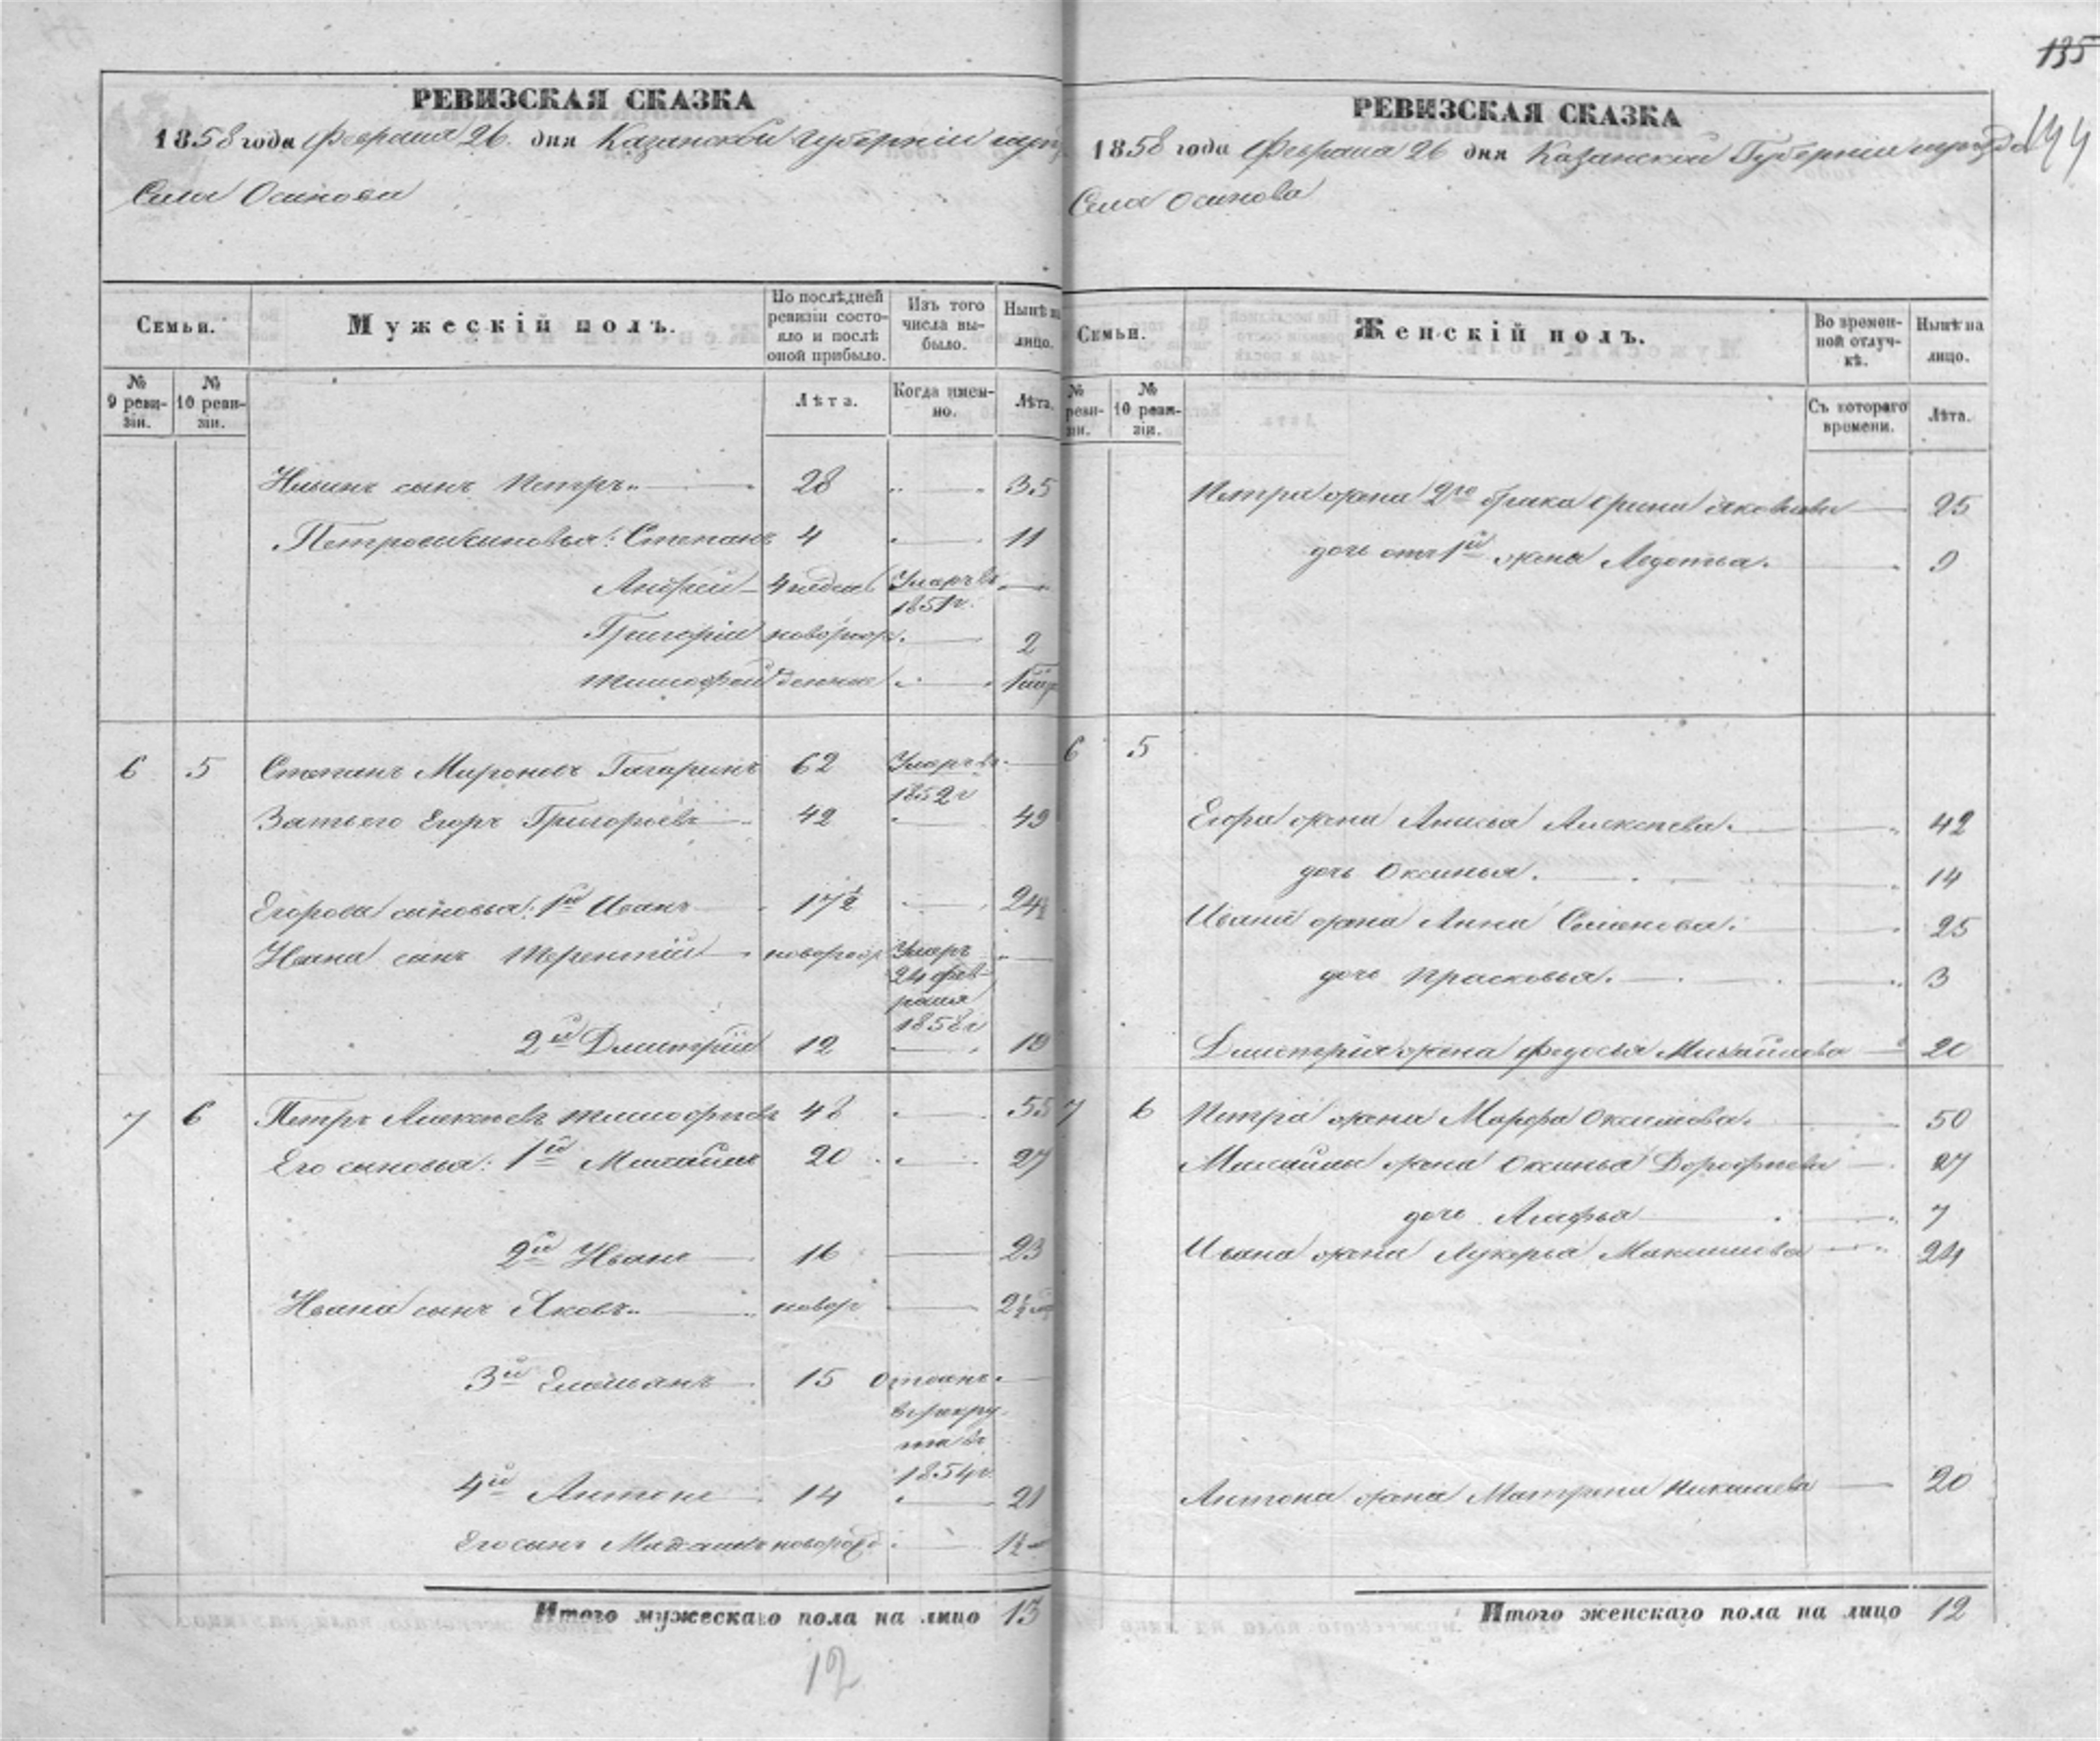 135
144
РЕВИЗСКАЯ СКАЗКА
1858 года Февраля 26 дня Казанской Губерніи
Села Осинова
Семьи.
Мужескій полъ.
По послѣдней ревизіи состояло и послѣ оной прибыло.
Изъ того числа выбыло.
Нынѣ на лицо.
№ 9 ревизіи.
№ 10 ревизіи.
Лѣта.
Когда именно.
Лѣта.
сынъ Петръ 28 35
Петровы сыновья: Степанъ 4 11
Андрей 4 недел Умеръ въ 1851 г.
Григорій новорож 2
Тимофей 1
6 5 Степанъ Мироновъ Гагаринъ 62 Умеръ въ 1852 г
Зять его Егоръ Григорьевъ 42 49
Егоровы сыновья: 1й Иванъ 17½ 24½
Ивана сынъ Терентій новорож Умеръ 24 февраля 1858 г
2й Дмитрій 12 19
7 6 Петръ Алексѣевъ Тимофѣевъ 48 55
Его сыновья: 1й Михайла 20 27
2й Иванъ 16 23
Ивана сынъ Яковъ новор 2½
3й Емельянъ 15 Отданъ въ рекрута въ 1854 г
4й Антонъ 14 21
Его сынъ новорожд 1½
Итого мужескаго пола на лицо 13
12
РЕВИЗСКАЯ СКАЗКА
1858 года Февраля 26 дня Казанской Губерніи
Села Осинова
Семьи.
Женскій полъ.
Во временной отлучкѣ.
Нынѣ на лицо.
№ реви- зіи.
№ 10 ревизіи.
Съ котораго времени.
Лѣта.
Петра жена 2го брака Ирина Яковлева 25
дочь отъ 1й жены Авдотья. 9
6 5
Егора жена Анисья Алексѣева. 42
дочь Оксинья. 14
Ивана жена Анна Семенова. 25
дочь Прасковья. 3
Дмитрія жена Федосья Михайлова 20
7 6 Петра жена Марфа 50
Михайлы жена Оксинья Дорофѣева 27
дочь Агафья 7
Ивана жена Лукерья Максимова 24
Антона жена Матрена Николаева 20
Итого женскаго пола на лицо 12